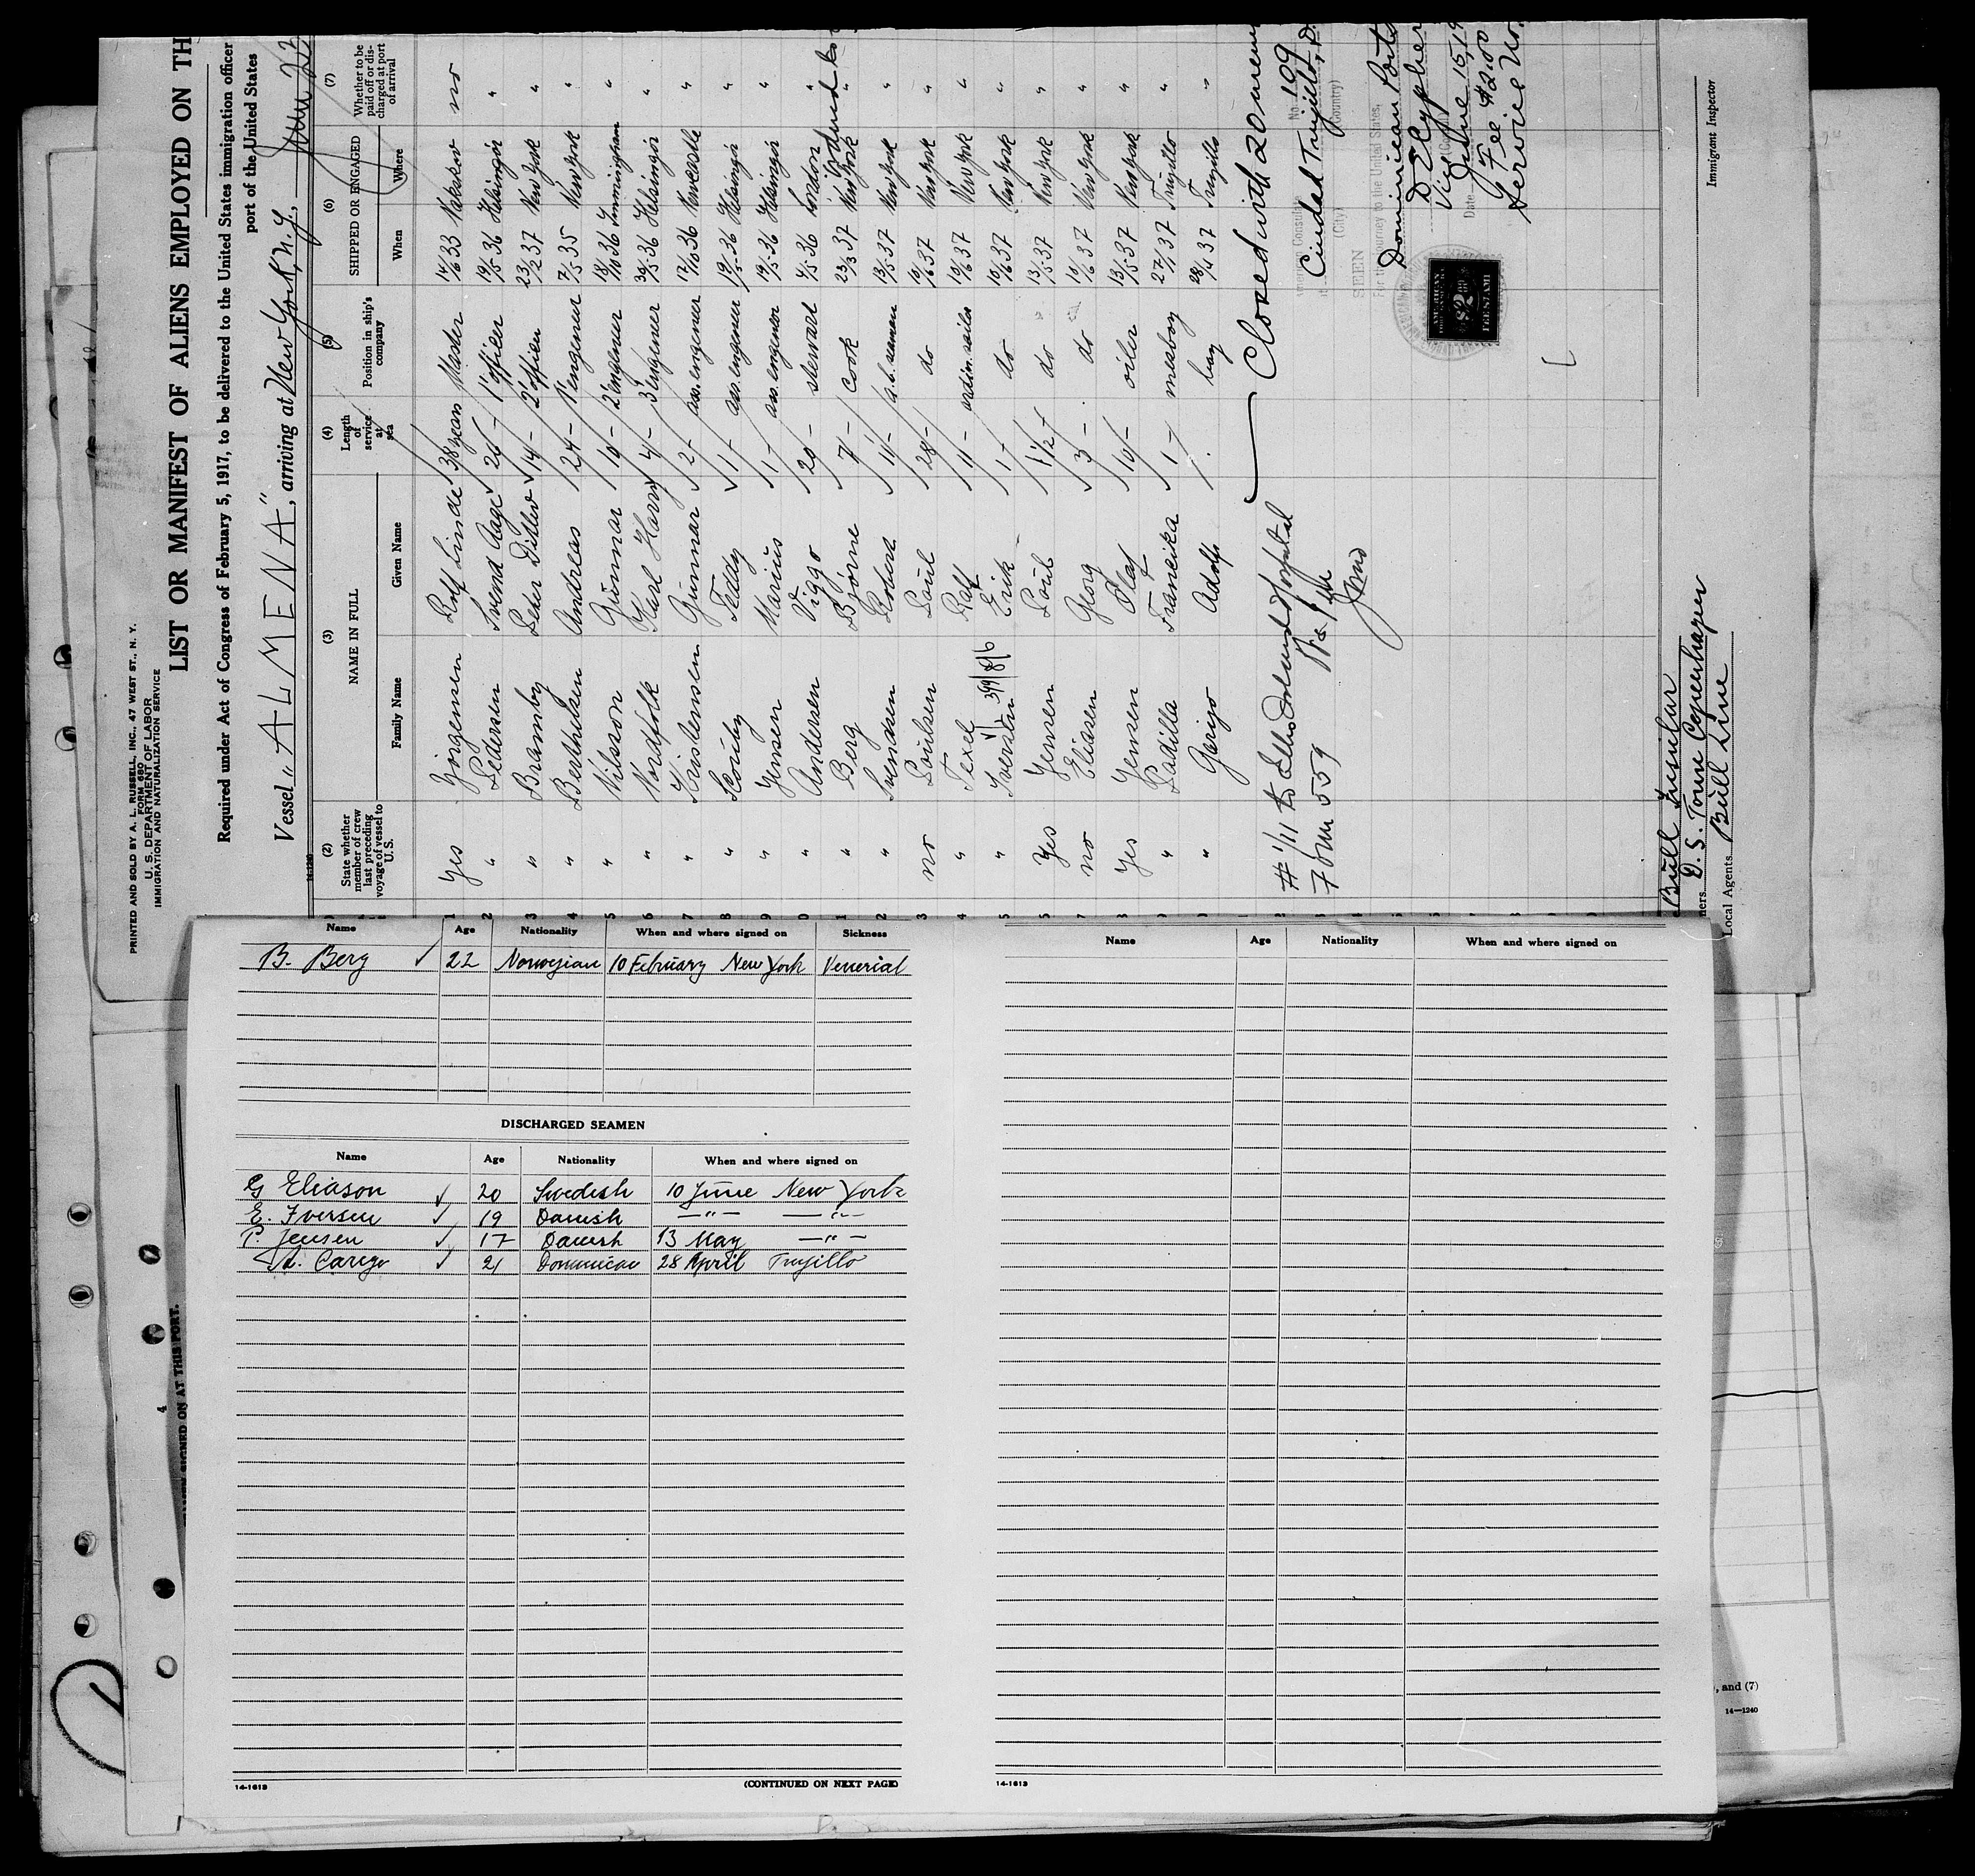 PRINTED AND SOLD BY A. L. RUSSELL, INC., 47 WEST ST., N. Y.
FORM 680
U. S. DEPARTMENT OF LABOR
IMMIGRATION AND NATURALIZATION SERVICE
LIST OR MANIFEST OF ALIENS EMPLOYED ON TH
Required under Act of Congress of February 5, 1917, to be delivered to the United States immigration officer
port of the United States
Vessel "ALMENA", arriving at New York, N.Y., June 22
14-1240
(2) (3) (4) (5) (6) (7)
State whether member of crew last preceding voyage of vessel to U.S. NAME IN FULL Length of service at sea Position in ship's company SHIPPED OR ENGAGED Whether to be paid off or discharged at port of arrival
Family Name Given Name When Where
1 Yes Jörgensen Rolf Linde 38 years Master 14/6 33 Nakskov no
2 " Pedersen Svend Aage 26 - 1' officer 19/5 36 Helsingör "
3 " Bramby Peter Ditlev 14 - 2' officer 23/2 37 New York "
4 " Berthelsen Andreas 24 - 1' engeneer 7/5 35 New York "
5 " Nilsson Gunnar 10 - 2' engeneer 18/10 36 Immingham "
6 " Nordfolk Karl Harry 4 - 3' engeneer 30/5 36 Helsingör "
7 " Kristensen Gunnar 2 - ass. engeneer 17/10 36 Newcastle "
8 " Scouby Teddy 1 - ass. engeneer 19/5 36 Helsingör "
9 " Jensen Marius 1 - ass. engeneer 19/5 36 Helsingör "
0 " Andersen Viggo 20 - steward 4/5 36 London "
1 " Berg Björne 7 - cook 23/3 37 New York "
2 " Svendsen Robert 11 - a.b. seaman 13/5 37 New York "
3 no Poulsen Poul 28 - do 10/6 37 New York "
4 " Texel Ralf 11 - ordin. sailor 10/6 37 New York "
5 " Iversen Erik 1 - do 10/6 37 New York "
6 Yes Jensen Poul 1 1/2 - do 13/5 37 New York "
7 no Eliasen Georg 3 - do 10/6 37 New York "
8 Yes Jensen Olaf 10 - oiler 13/5 37 New York "
9 " Padilla Francika 1 - messboy 27/1 37 Trujillo "
0 " Garijo Adolfo boy 28/4 37 Trujillo "
Closed with 20 mem
# 1/11 to Ellis Island Hospital
Form 559
No. 109
American Consular
Ciudad Trujillo, D.
(City) (Country)
SEEN
For the journey to the United States,
Dominican Ports
Vic
June 15, 19
Date
Fee $2.00
Service No.
AMERICAN
$2.00
FEE STAMP
Bull Insular
ners D. S. Torm Copenhagen
Local Agents Bull Line
Immigrant Inspector
Name Age Nationality When and where signed on Sickness
B. Berg ✓ 22 Norwegian 10 February New York Venerial
DISCHARGED SEAMEN
Name Age Nationality When and where signed on
G Eliason ✓ 20 Swedish 10 June New York
E. Iversen ✓ 19 Danish —"— —"—
P. Jensen ✓ 17 Danish 13 May —"—
A. Carigo ✓ 21 Dominican 28 April Trujillo
14-1613 (CONTINUED ON NEXT PAGE)
Name Age Nationality When and where signed on
14-1613
SIGNED ON AT THIS PORT.
4
, and (7)
14—1240